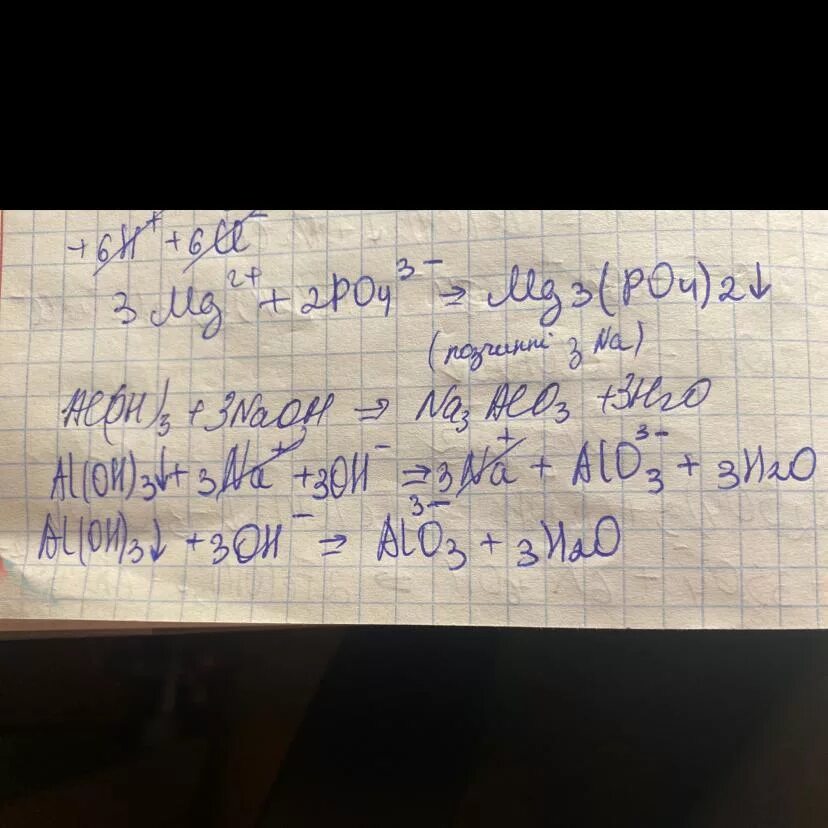 +6H⁺ +6Cl⁻
3Mg²⁺ + 2PO₄³⁻ ⇒ Mg₃(PO₄)₂↓
(розчинні з Na)
Al(OH)₃ + 3NaOH ⇒ Na₃AlO₃ + 3H₂O
Al(OH)₃↓ + 3Na⁺ + 3OH⁻ ⇒ 3Na⁺ + AlO₃³⁻ + 3H₂O
Al(OH)₃↓ + 3OH⁻ ⇒ AlO₃³⁻ + 3H₂O